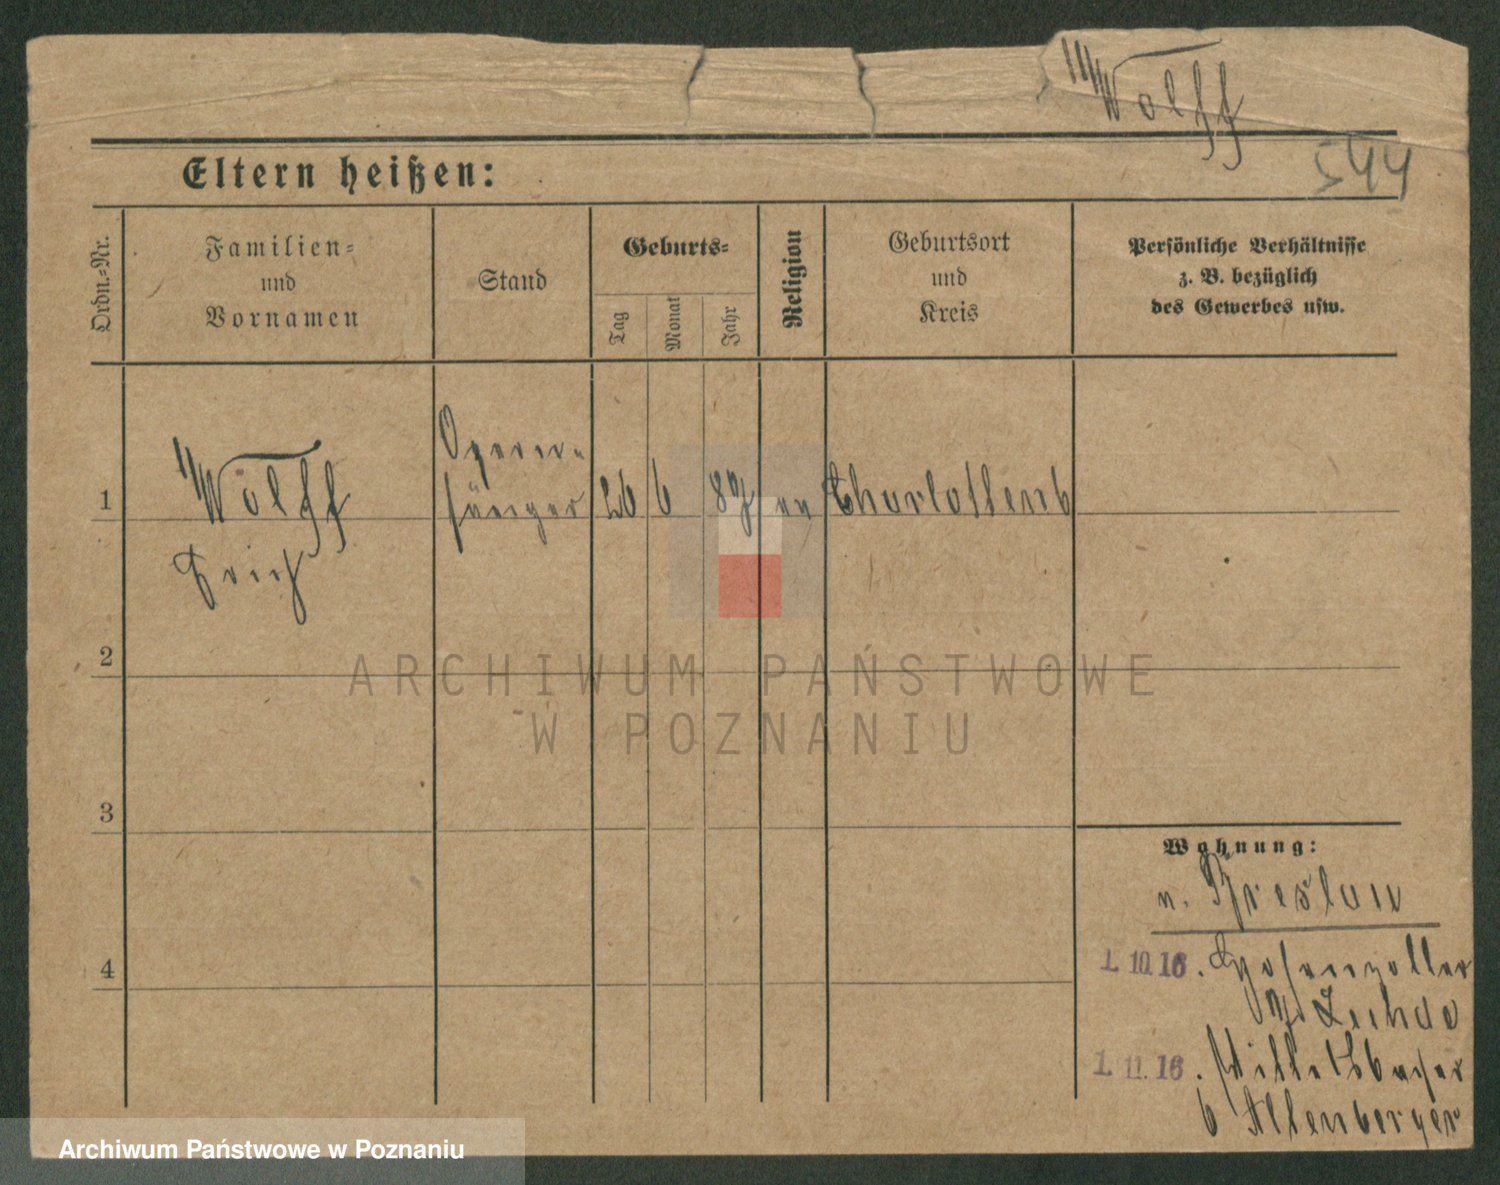 Wolff
544
Eltern heißen:
Ordn.-Nr.
Familien-
und
Vornamen
Stand
Geburts-
Tag
Monat
Jahr
Religion
Geburtsort
und
Kreis
Persönliche Verhältnisse
z. B. bezüglich
des Gewerbes usw.
1
Wolff
Erich
Opern-
sänger
26
6
ev
Charlottenb
2
ARCHIWUM PAŃSTWOWE
W POZNANIU
3
4
Wohnung:
n. Breslau
1. 10. 16. Hohenzoller
1. 11. 16.
6 Altenberger
Archiwum Państwowe w Poznaniu